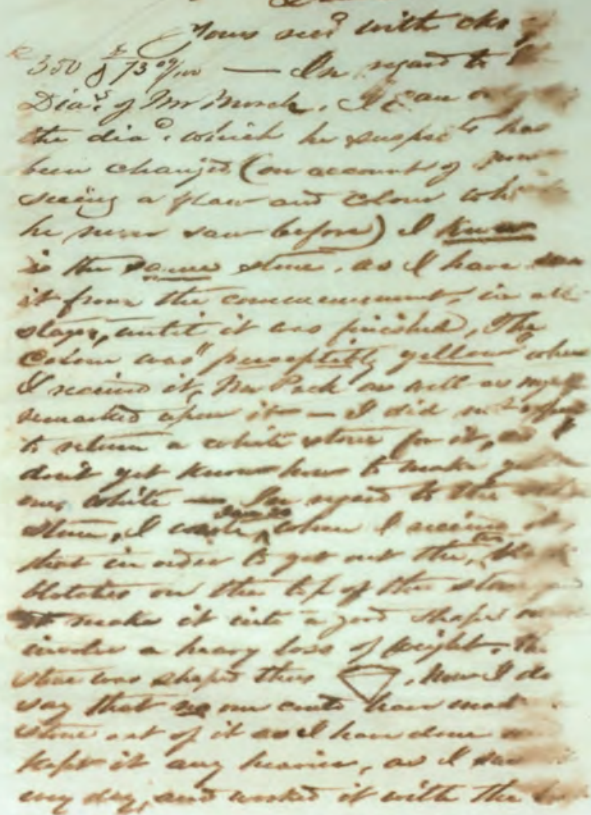 Yours recd with
350 & 73 09/100 — In regard to
Dias of Mr
the dia. which he suspects has
been changed (on account of now
seeing a flaw and colour
he never saw before) I know
is the same stone, as I have
it from the commencement, in all
stages, until it was finished, The
Colour was "perceptibly yellow when
I received it, Mr Peck as well as myself
remarked upon it — I did not
to return a white stone for it,
don't yet know how to make
ones white — In regard to the
stone, I wrote when I received it,
that in order to get out the
blotches on the top of the stone
make it into a good shape
involve a heavy loss of weight. The
stone was shaped thus , Now I do
say that no one could have made
stone out of it as I have done
kept it any heavier, as I saw
every day, and worked it with the